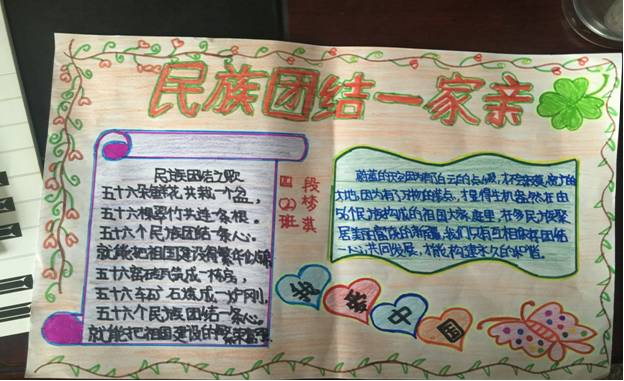 民族团结一家亲
民族团结之歌
五十六朵鲜花共栽一个盆，
五十六棵翠竹共连一条根。
五十六个民族团结一条心。
就能把祖国建设得繁华似锦
五十六窑砖瓦筑成一栋房，
五十六车矿石炼成一炉刚，
五十六个民族团结一条心。
就能把祖国建设的繁荣富强
四(2)班
段梦淇
蔚蓝的天空因为有了白云的点缀，才不会寂寞，宽广的
大地因为有了万物的装点，才显得生机盎然在由
56个民族构成的祖国大家庭里，许多民族聚
居美丽富饶的新疆，我们只有互相依存团结
一心，共同发展，才能构建永久的和谐。
中国